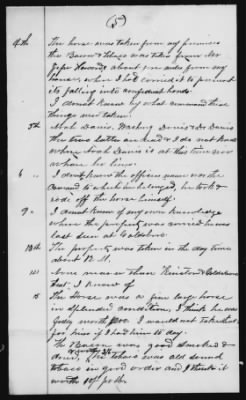 (5)
4th The horse was taken from my premises
the Bacon & Tobacco was taken from Mr
Jesse Howards about five miles from my
house, where I had carried it to prevent
its falling into confederate hands.
I do not know by what command these
things were taken.
5th Noah Davis, Mackey Davis & Dr Davis
the two latter are dead & I do not know
where Noah Davis is at this time nor
where he lives.
6 " I don't know the officers name nor the
Command to which he belonged, he took &
rode off the horse himself.
9 " I do not know of my own knowledge
where the property was carried. was
last seen at Goldsboro
13th The property was taken in the day time
about 12 M.
14 None nearer than Kinston & Goldsboro
that I know of
15 The Horse was a fine large horse
in splendid condition, I think he was
worth I would not take that
for him if I had him to day.
The Bacon was good smoked &
dried, The Tobacco was old sound
tobacco in good order and I think it
worth pr lb.